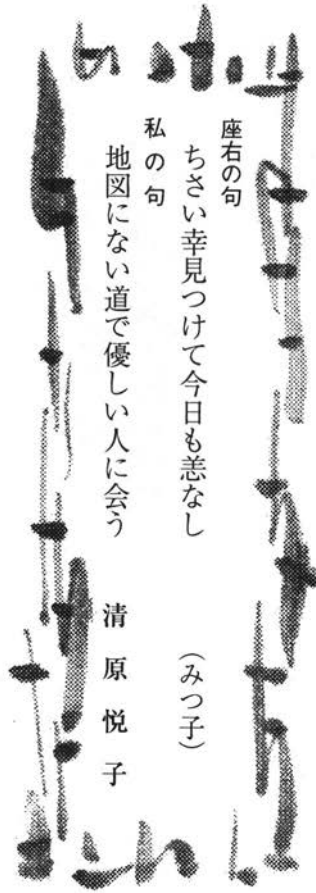 座右の句
ちさい幸見つけて今日も恙なし
（みつ子）
私の句
地図にない道で優しい人に会う
清原悦子